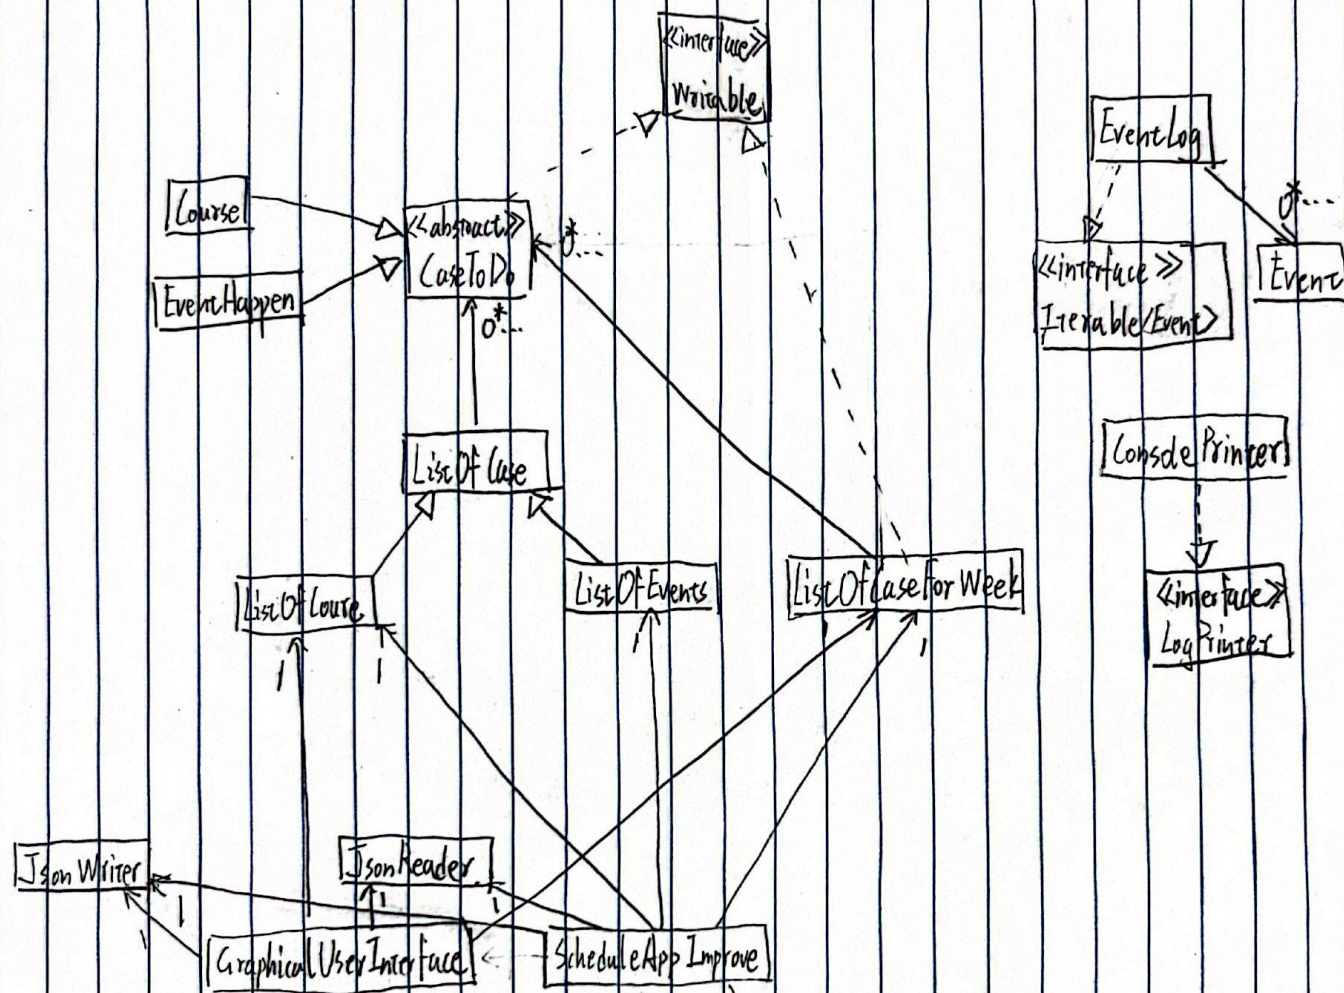 <<interface>>
Writable
EventLog
0*...
Course
<<abstract>>
CaseToDo
0*...
EventHappen
0*...
<<interface>>
Iterable<Event>
Event
ListOfCase
ConsolePrinter
ListOfCoure
ListOfEvents
ListOfCaseForWeek
<<interface>>
LogPrinter
1
1
1
1
JsonWriter
JsonReader
1
1
1
1
GraphicalUserInterface
ScheduleAppImprove